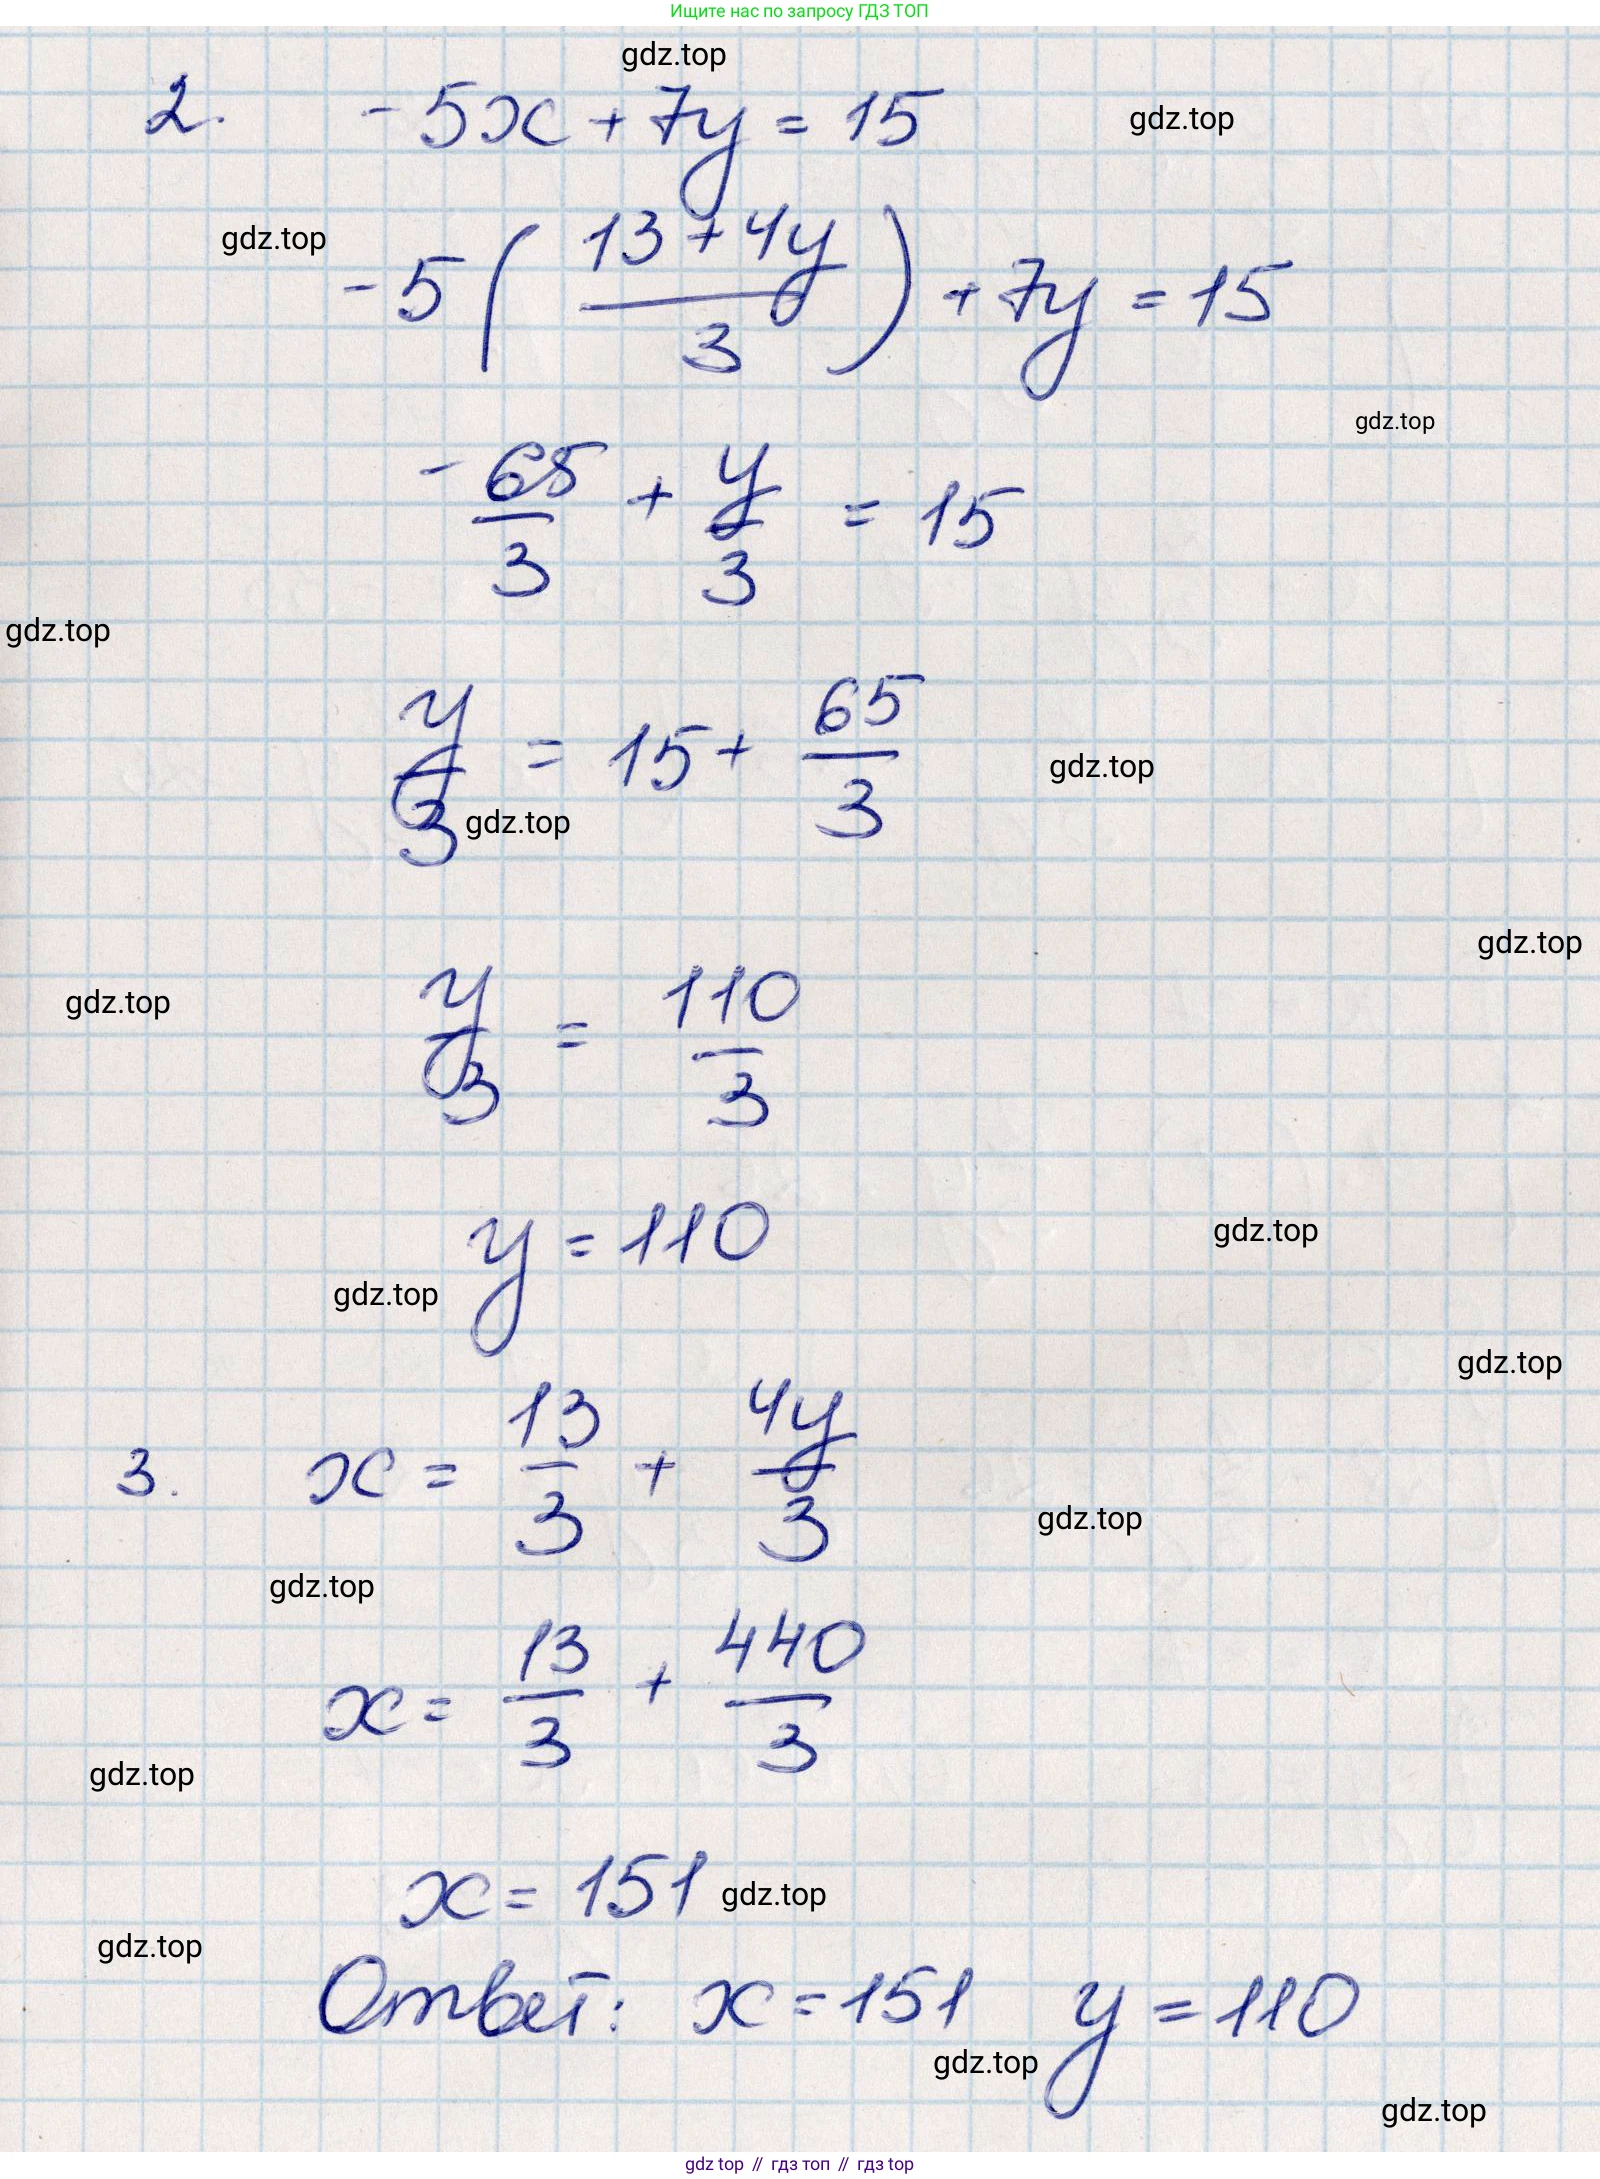 Ищите нас по запросу ГДЗ ТОП
gdz.top
2. -5x + 7y = 15
gdz.top
gdz.top
-5((13 + 4y)/3) + 7y = 15
gdz.top
-65/3 + y/3 = 15
gdz.top
y/3 = 15 + 65/3
gdz.top
gdz.top
gdz.top
gdz.top
y/3 = 110/3
y = 110
gdz.top
gdz.top
gdz.top
3. x = 13/3 + 4y/3
gdz.top
gdz.top
x = 13/3 + 440/3
gdz.top
x = 151
gdz.top
gdz.top
Ответ: x = 151 y = 110
gdz.top
gdz.top
gdz top // гдз топ // гдз top